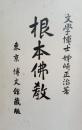 文學博士 姉崎正治著
根本佛教
東京 博文館藏版